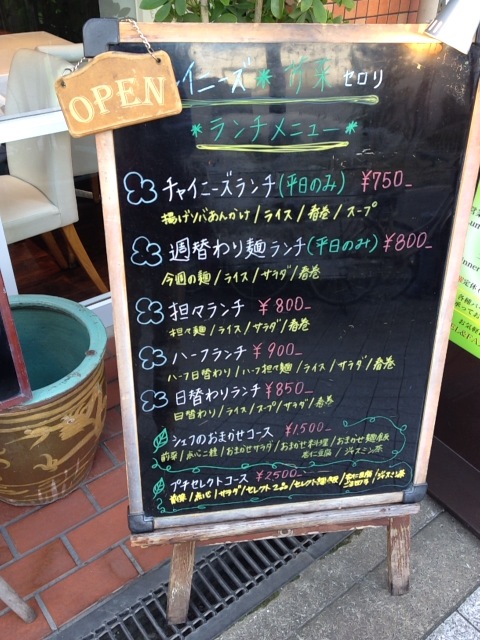 OPEN
イニーズ＊ 菜 セロリ
＊ランチメニュー＊
チャイニーズランチ(平日のみ) ¥750-
揚げソバあんかけ/ライス/春巻/スープ
週替わり麺ランチ(平日のみ) ¥800-
今週の麺/ライス/サラダ/春巻
担々ランチ ¥800-
担々麺/ライス/サラダ/春巻
ハーフランチ ¥900-
ハーフ日替わり/ハーフ担々麺/ライス/サラダ/春巻
日替わりランチ ¥850-
日替わり/ライス/スープ/サラダ/春巻
シェフのおまかせコース ¥1,500-
前菜/点心二種/おまかせサラダ/おまかせ料理/おまかせ麺飯/杏仁豆腐/ジャスミン茶
プチセレクトコース ¥2,500-
前菜/点心/サラダ/セレクト2品/セレクト麺飯/杏仁豆腐/ジャスミン茶